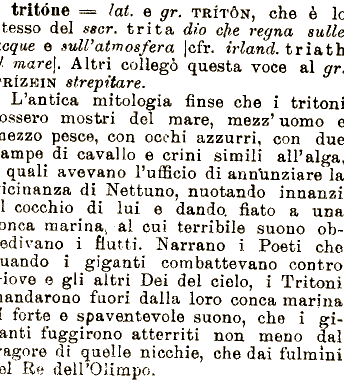 tritóne = lat. e gr. TRÍTÔN, che è lo
tesso del sscr. trita dio che regna sulle
cque e sull'atmosfera |cfr. irland. triath
l mare|. Altri collegò questa voce al gr.
RÍZEIN strepitare.
L'antica mitologia finse che i tritoni
ossero mostri del mare, mezz'uomo e
nezzo pesce, con occhi azzurri, con due
ampe di cavallo e crini simili all'alga,
quali avevano l'ufficio di annunziare la
icinanza di Nettuno, nuotando innanzi
l cocchio di lui e dando fiato a una
onca marina, al cui terribile suono ob-
edivano i flutti. Narrano i Poeti che
uando i giganti combattevano contro
iove e gli altri Dei del cielo, i Tritoni
nandarono fuori dalla loro conca marina
ì forte e spaventevole suono, che i gi-
anti fuggirono atterriti non meno dal
ragore di quelle nicchie, che dai fulmini
el Re dell'Olimpo.